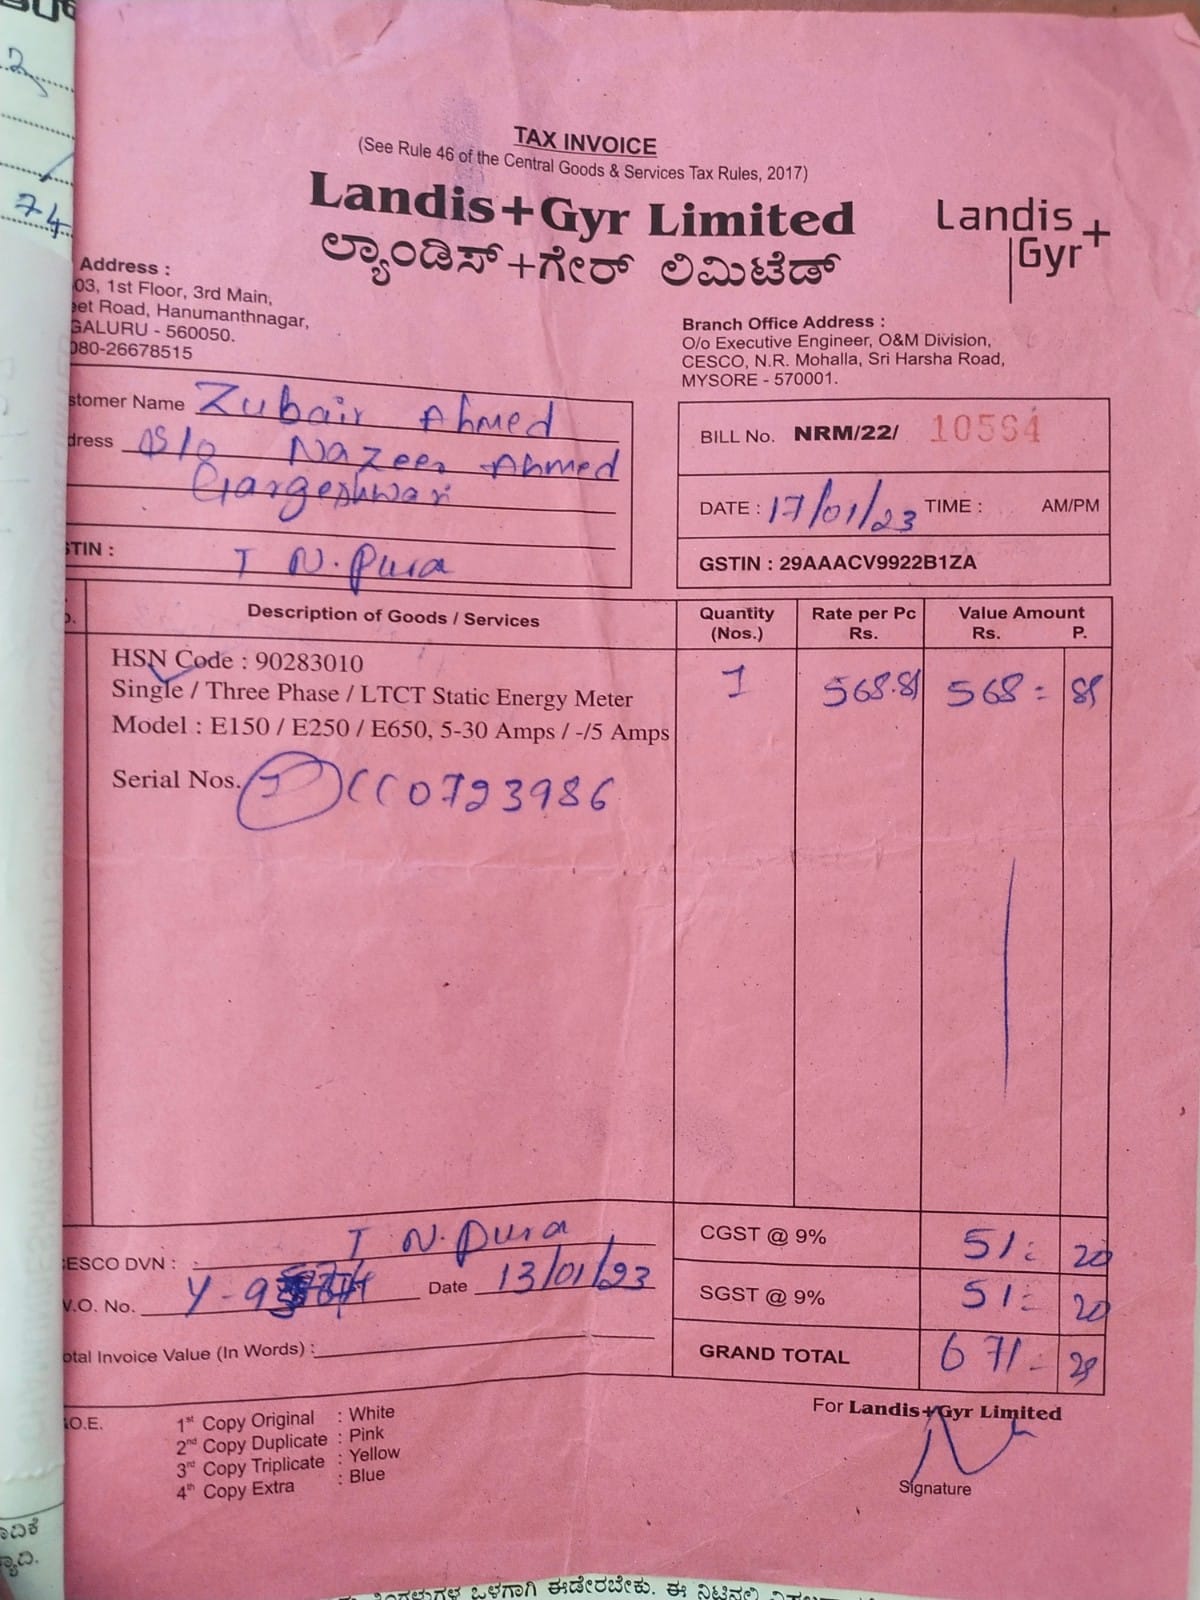 2
74
TAX INVOICE
(See Rule 46 of the Central Goods & Services Tax Rules, 2017)
Landis+Gyr Limited
ಲ್ಯಾಂಡಿಸ್+ಗೇರ್ ಲಿಮಿಟೆಡ್
Landis+
Gyr
Address :
03, 1st Floor, 3rd Main,
eet Road, Hanumanthnagar,
GALURU - 560050.
080-26678515
Branch Office Address :
O/o Executive Engineer, O&M Division,
CESCO, N.R. Mohalla, Sri Harsha Road,
MYSORE - 570001.
stomer Name Zubair Ahmed
dress S/o Nazeer Ahmed
Gargeshwari
STIN : T N. Pura
BILL No. NRM/22/ 10564
DATE : 17/01/23 TIME : AM/PM
GSTIN : 29AAACV9922B1ZA
Description of Goods / Services
Quantity (Nos.)
Rate per Pc Rs.
Value Amount Rs. P.
HSN Code : 90283010
Single / Three Phase / LTCT Static Energy Meter 1 568.81 568 = 81
Model : E150 / E250 / E650, 5-30 Amps / -/5 Amps
Serial Nos. CC0723986
ESCO DVN : T N. Pura
V.O. No. Y-9 Date 13/01/23
otal Invoice Value (In Words) :
CGST @ 9% 51 = 20
SGST @ 9% 51 = 20
GRAND TOTAL 671 -
.O.E.
1st Copy Original : White
2nd Copy Duplicate : Pink
3rd Copy Triplicate : Yellow
4th Copy Extra : Blue
For Landis+Gyr Limited
Signature
ಒಳಗಾಗಿ ಈಡೇರಬೇಕು. ಈ